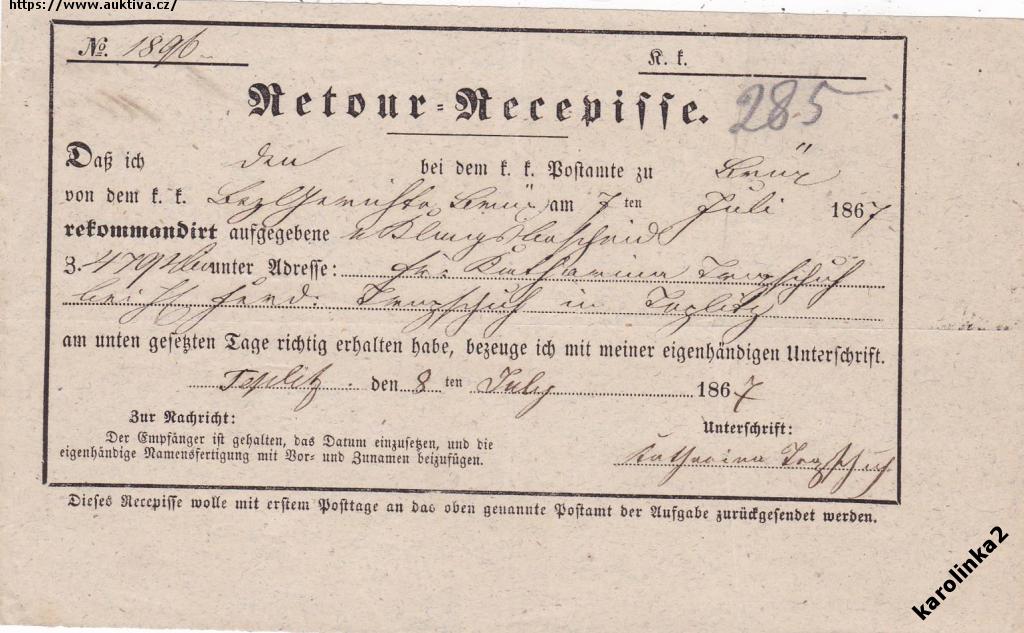 https://www.auktiva.cz/
No. 1896
K. k.
Retour-Recepisse.
285
Daß ich den bei dem k. k. Postamte zu Brüx
von dem k. k. BezGerichte Brüx am 7 ten Juli 1867
rekommandirt aufgegebene
Z. 479 unter Adresse: Katharina
Ferd. in Töplitz
am unten gesetzten Tage richtig erhalten habe, bezeuge ich mit meiner eigenhändigen Unterschrift.
Töplitz den 8 ten July 1867
Zur Nachricht:
Der Empfänger ist gehalten, das Datum einzusetzen, und die
eigenhändige Namensfertigung mit Vor- und Zunamen beizufügen.
Unterschrift:
Katharina
Dieses Recepisse wolle mit erstem Posttage an das oben genannte Postamt der Aufgabe zurückgesendet werden.
karolinka2